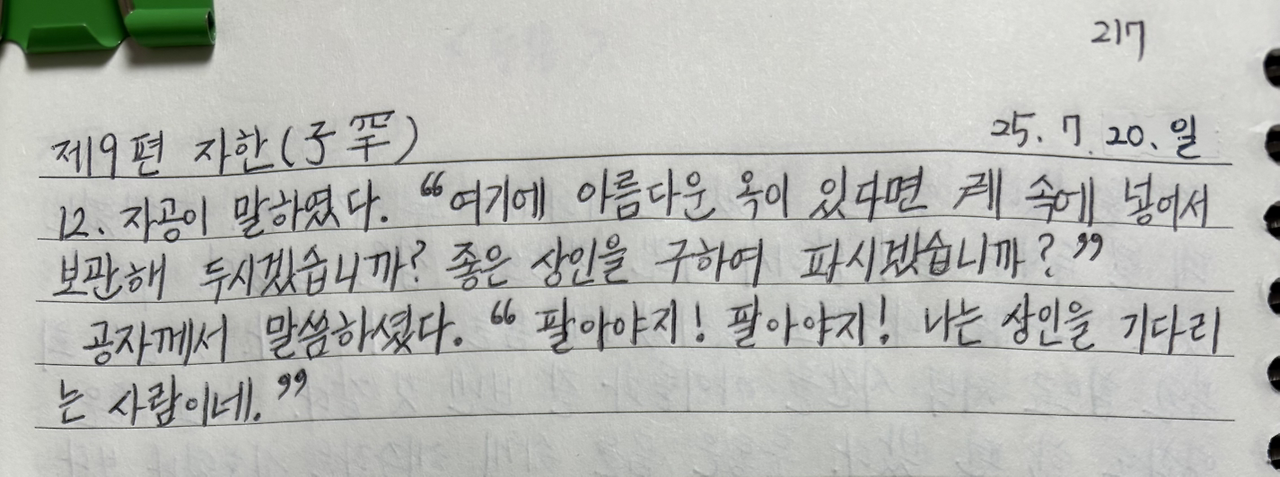 217
제9편 자한(子罕) 25. 7. 20. 일
12. 자공이 말하였다. “여기에 아름다운 옥이 있다면 궤 속에 넣어서
보관해 두시겠습니까? 좋은 상인을 구하여 파시겠습니까?”
공자께서 말씀하셨다. “팔아야지! 팔아야지! 나는 상인을 기다리
는 사람이네.”